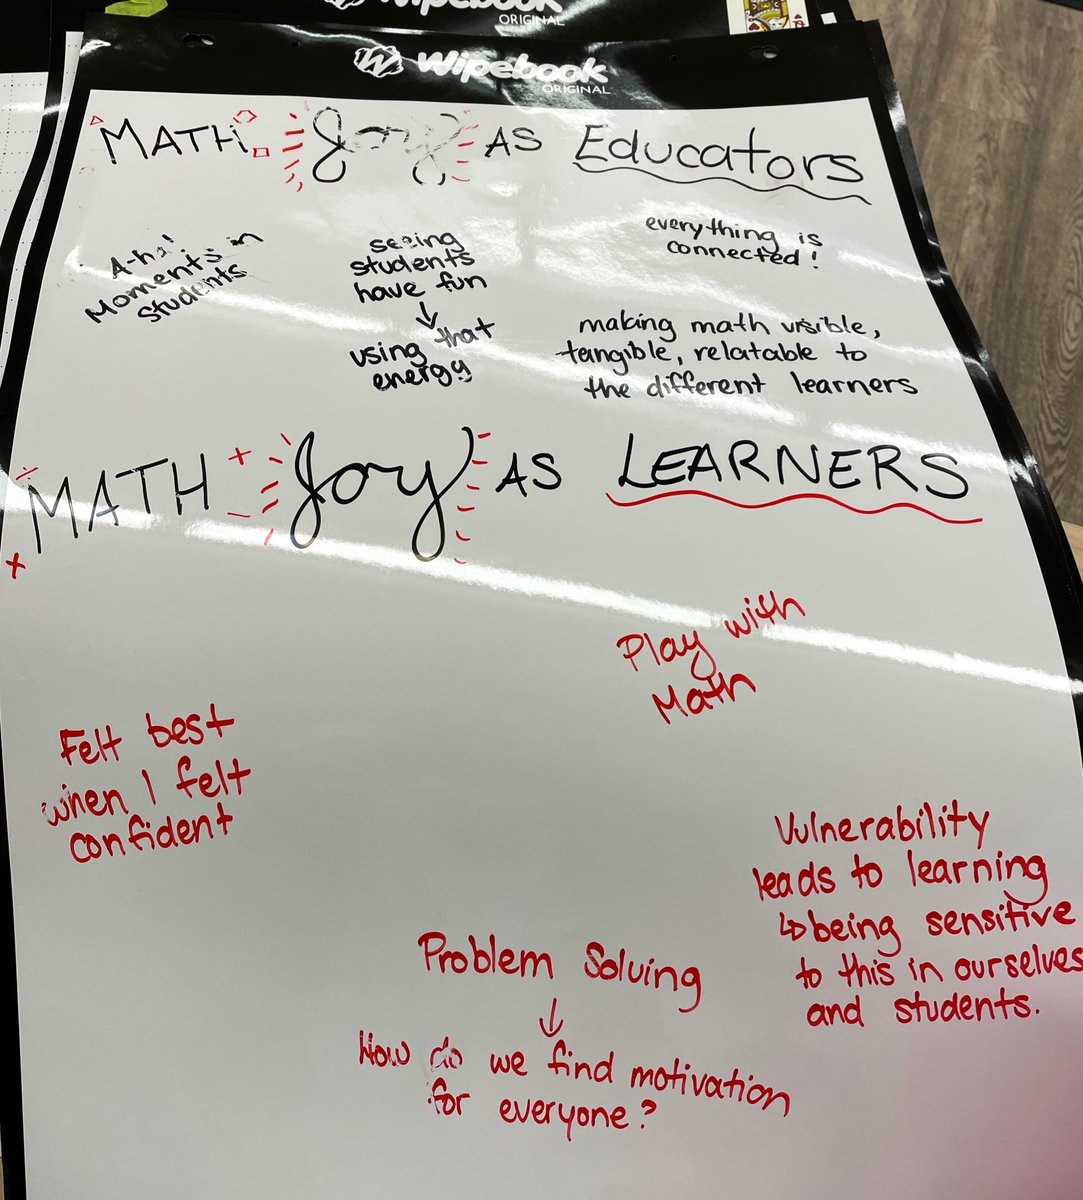 Wipebook
ORIGINAL
Wipebook
ORIGINAL
MATH Joy AS Educators
A-ha!
Moments in
students
seeing
students
have fun
↓
using that
energy
everything is
connected!
making math visible,
tangible, relatable to
the different learners
MATH Joy AS LEARNERS
Play with
Math
Felt best
when I felt
confident
Vulnerability
leads to learning
↳ being sensitive
to this in ourselves
and students.
Problem Solving
↓
How do we find motivation
for everyone?